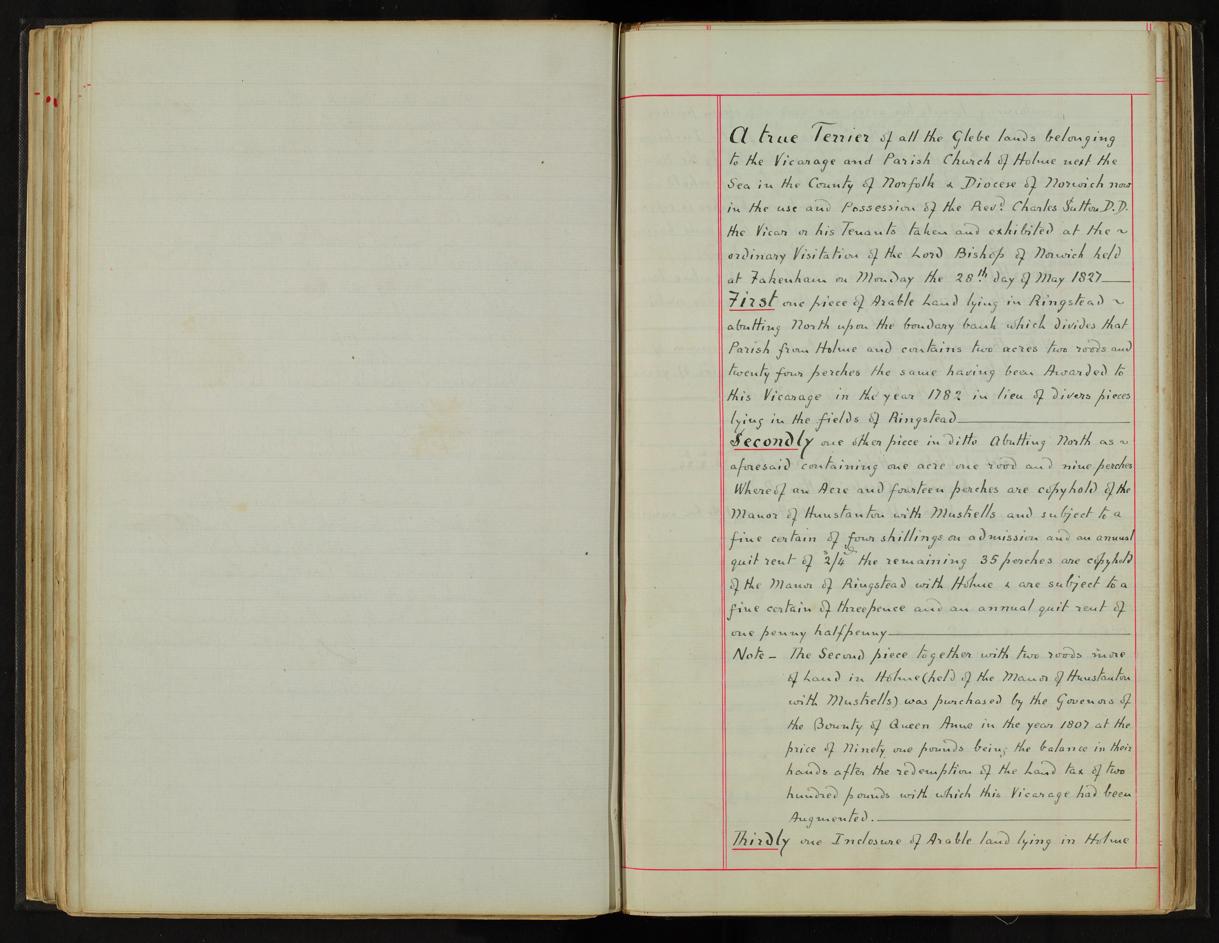 A true Terrier of all the Glebe lands belonging
to the Vicarage and Parish Church of Holme next the
Sea in the County of Norfolk & Diocese of Norwich now
in the use and Possession of the Revd. Charles Sutton D.D.
the Vicar or his Tenants taken and exhibited at the ~
ordinary Visitation of the Lord Bishop of Norwich held
at Fakenham on Monday the 28th day of May 1827
First one piece of Arable Land lying in Ringstead ~
abutting North upon the boundary bank which divides that
Parish from Holme and contains two acres two roods and
twenty four perches the same having been Awarded to
this Vicarage in the year 1782 in lieu of divers pieces
lying in the fields of Ringstead
Secondly one other piece in ditto Abutting North as ~
aforesaid containing one acre one rood and nine perches
Whereof an Acre and fourteen perches are copyhold of the
Manor of Hunstanton with Mustrells and subject to a
fine certain of four shillings on admission and an annual
quit rent of 2/4 the remaining 35 perches are copyhold
of the Manor of Ringstead with Holme & are subject to a
fine certain of threepence and an annual quit rent of
one penny halfpenny
Note – The Second piece together with two roods more
of Land in Holme (held of the Manor of Hunstanton
with Mustrells) was purchased by the Govenors of
the Bounty of Queen Anne in the year 1807 at the
price of Ninety one pounds being the balance in their
hands after the redemption of the Land tax of two
hundred pounds with which this Vicarage had been
Augmented.
Thirdly one Inclosure of Arable land lying in Holme